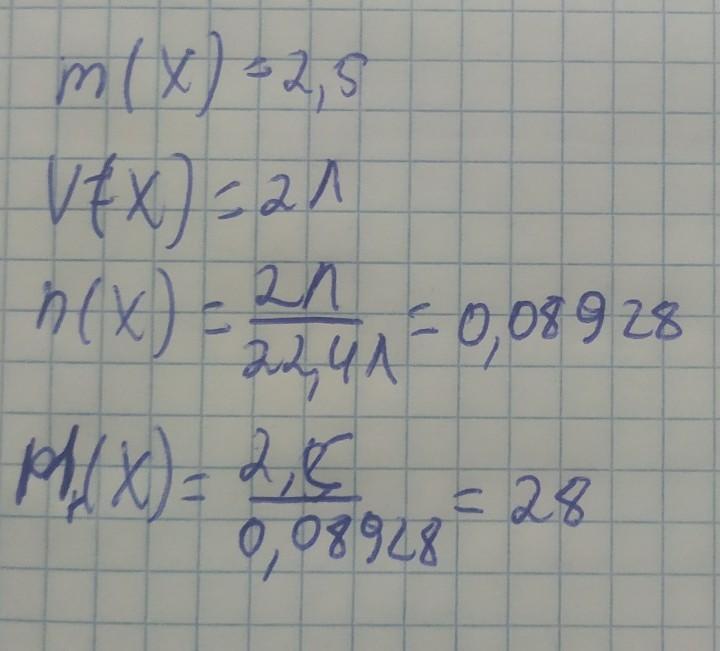 m(X) = 2,5
V(X) = 2л
n(X) = 2л / 22,4л = 0,08928
Mr(X) = 2,5 / 0,08928 = 28